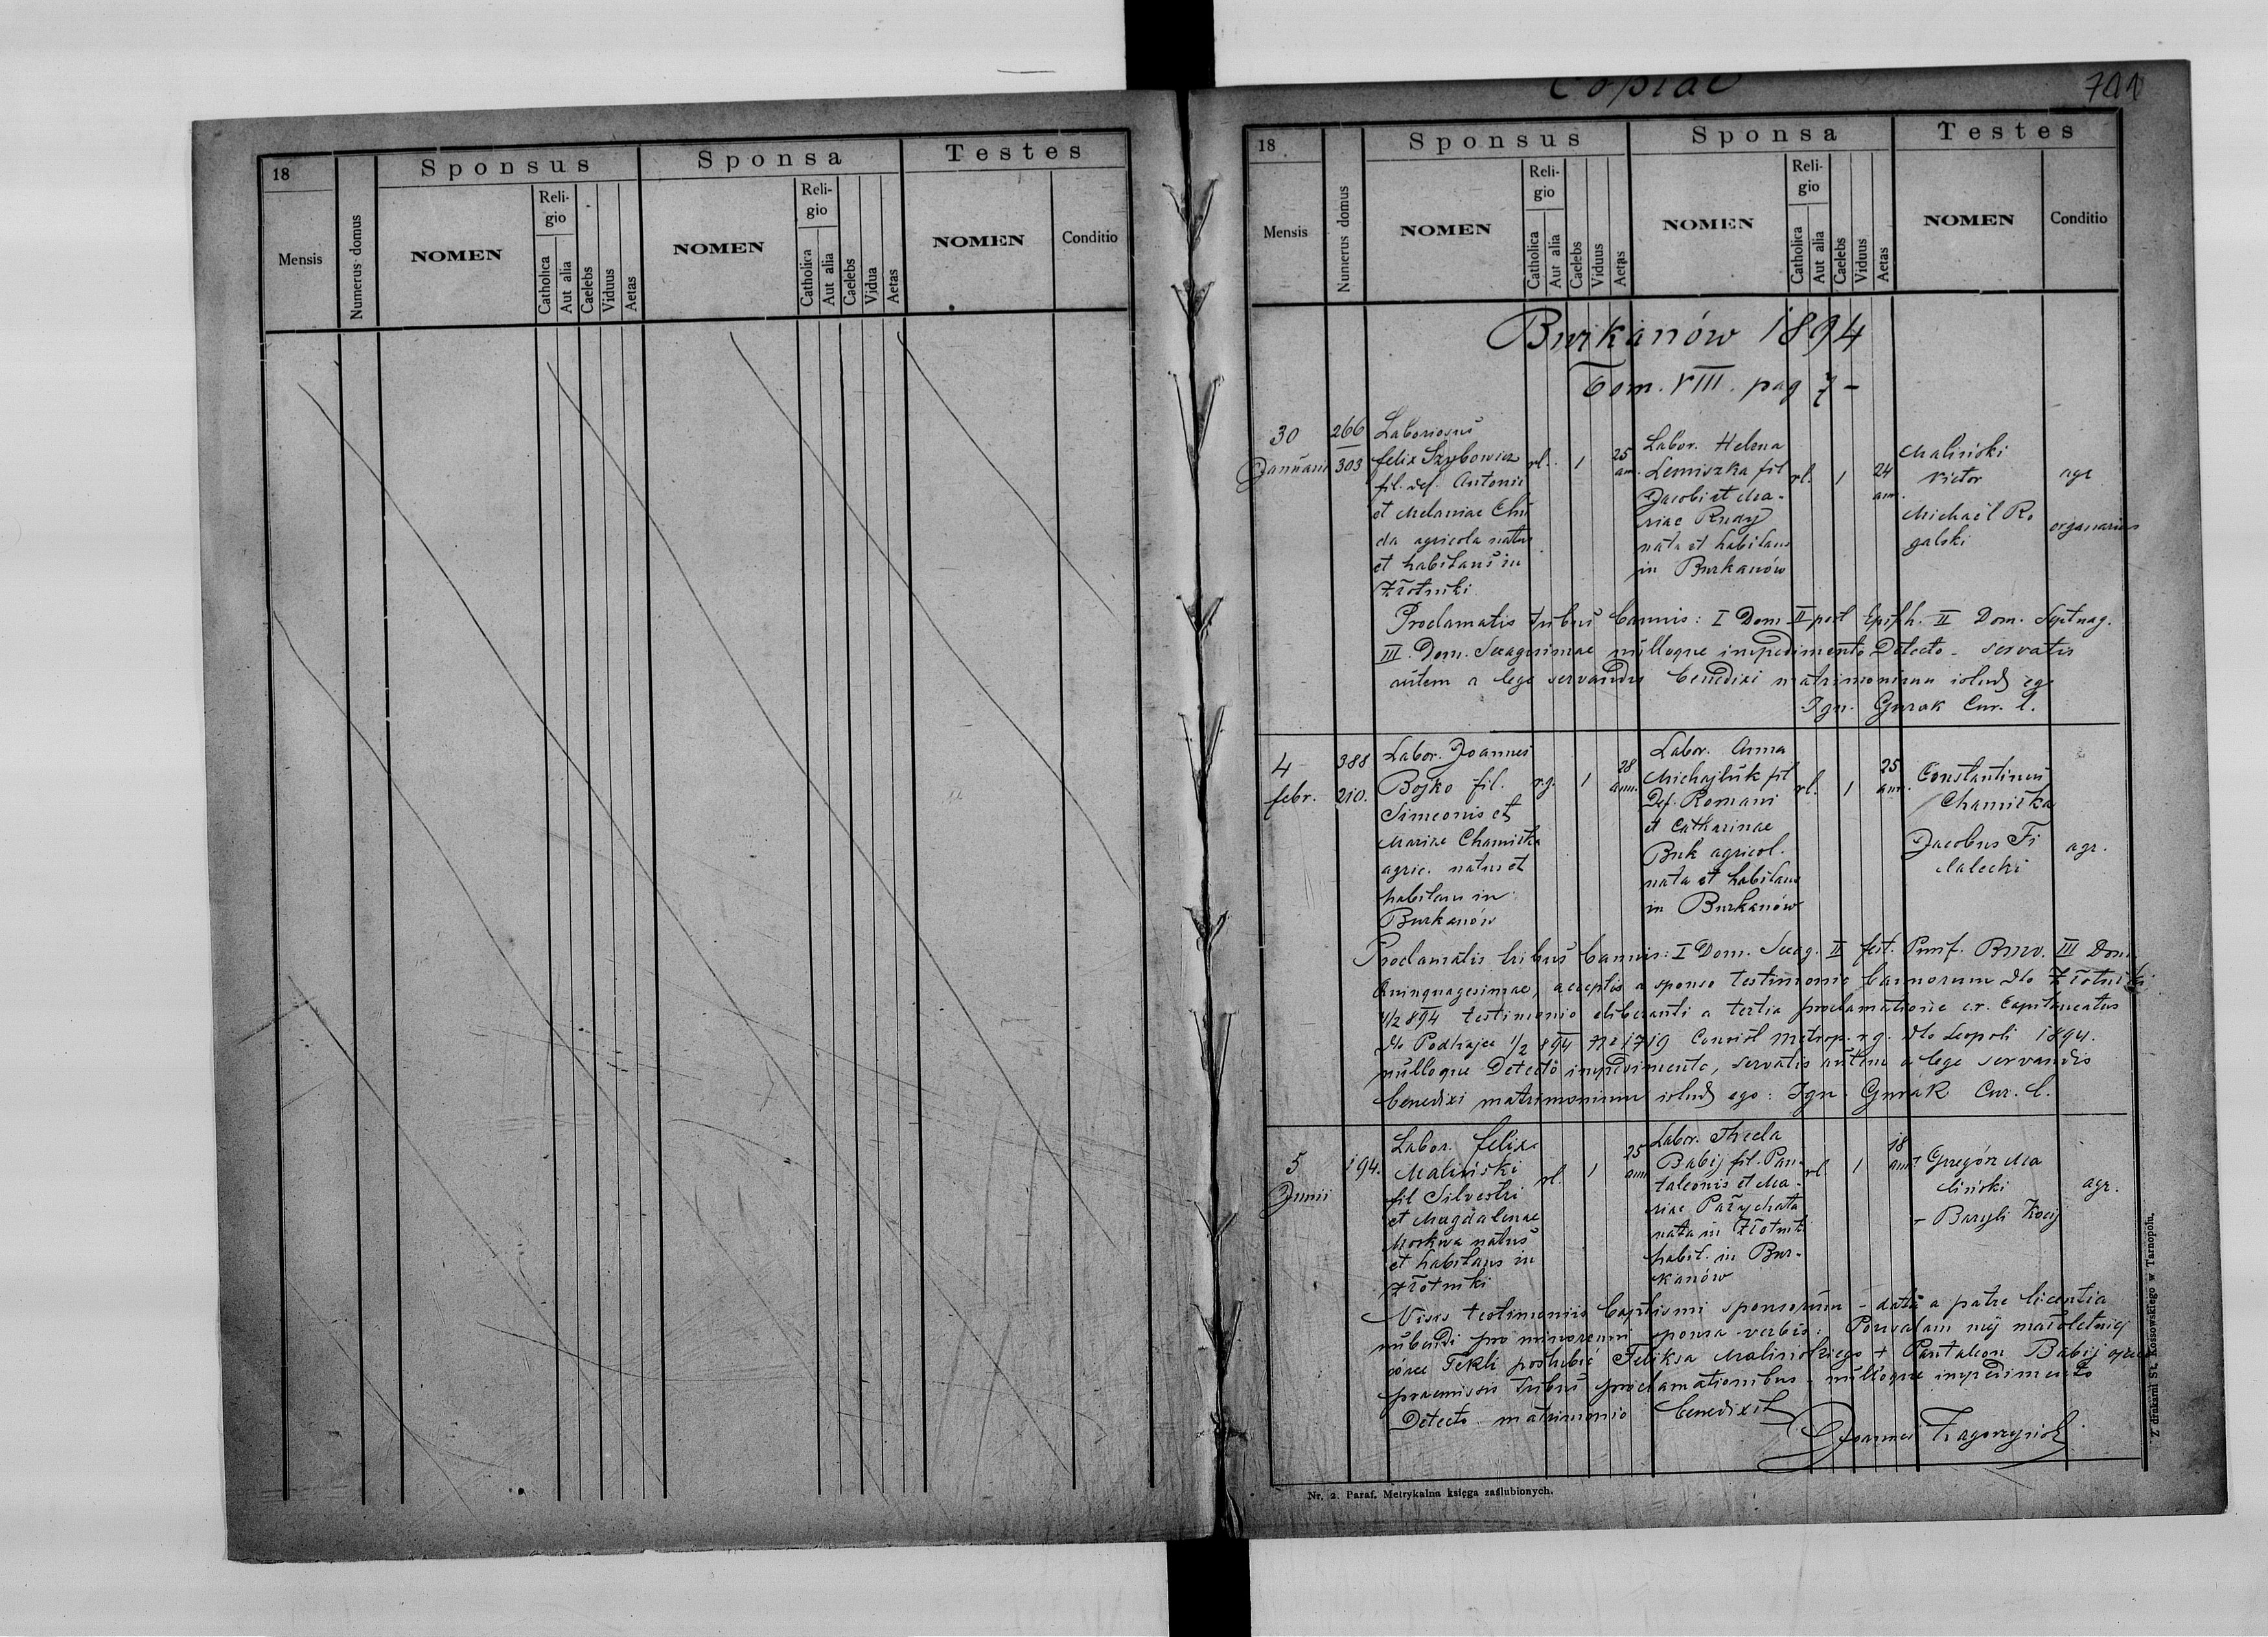 18
Sponsus
Sponsa
Testes
Mensis
Numerus domus
NOMEN
Reli-
gio
Catholica
Aut alia
Caelebs
Viduus
Aetas
NOMEN
Reli-
gio
Catholica
Aut alia
Caelebs
Vidua
Aetas
NOMEN
Conditio
Copiae
701
18
Sponsus
Sponsa
Testes
Mensis
Numerus domus
NOMEN
Reli-
gio
Catholica
Aut alia
Caelebs
Viduus
Aetas
NOMEN
Reli-
gio
Catholica
Aut alia
Caelebs
Viduus
Aetas
NOMEN
Conditio
Burkanów 1894
Tom. VIII. pag 7-
30
Januarii
266
303
Laboriosus
felix Szybowicz
fil. def. Antonii
et Melaniae Chu
da agricola natus
et habitans in
Złotniki
rl.
1
25
ann.
Labor. Helena
Lemiszka fil
Jacobi et Ma-
riae Rudy
nata et habitans
in Burkanów
rl.
1
24
ann.
Maliński
Victor
agr
Michaël Ro
galski
organarius
Proclamatis tribus bannis: I Dom II post Epiph. II Dom. Septuag.
III. Dom. Sexagesimae nulloque impedimento Detecto - servatis
autem a lege servandis benedixi matrimonium istud ego
Ign. Gurak Cur. l.
4
febr.
388
210.
Labor. Joannes
Bojko fil.
Simeonis et
Mariae Chamiska
agric. natus et
habitans in
Burkanów
r.g.
1
28
ann.
Labor. Anna
Michajluk fil
Def. Romani
et Catharinae
Buk agricol.
nata et habitans
in Burkanów
rl.
1
25
ann.
Constantinus
Chamiska
Jacobus Fi
lalecki
agr.
Proclamatis tribus bannis: I Dom. Sexag. II fest. Purif. III Dom.
Quinquagesimae, acceptis a sponso testimonio bannorum dto Złotniki
4/2 894 testimonio a tertia proclamatione c.r. Capitaneatus
dto Podhajce 1/2 894 No 1719 Consist metrop. r.g. dto Leopoli 1894.
nulloque Detecto impedimento, servatis autem a lege servandis
benedixi matrimonium istud ego: Ign. Gurak Cur. l.
5
Junii
194.
Labor. felix
Maliński
fil Silvestri
et Magdalenae
Moskwa natus
et habitans in
Złotniki
rl.
1
25
ann
Labor. Thecla
Babij fil. Pan-
taleonis et Ma-
riae Parychata
nata in Złotnik
habit. in Bur-
kanów
rl
1
18
ann
+ Gregór Ma
liński
agr.
- Baryli Kocij
Visis testimoniis baptismi sponsorum - data a patre licentia
nubendi pro minorenni sponsa verbis: Pozwalam mej małoletniej
córce Tekli poślubić Feliksa Malińskiego + Pantaleon Babij ojciec
praemissis tribus proclamationibus - nulloque impedimento
Detecto matrimonio benedixit
Joannes
Nr. 2. Paraf. Metrykalna księga zaślubionych.
Z drukarni St. Kossowskiego w Tarnopolu.